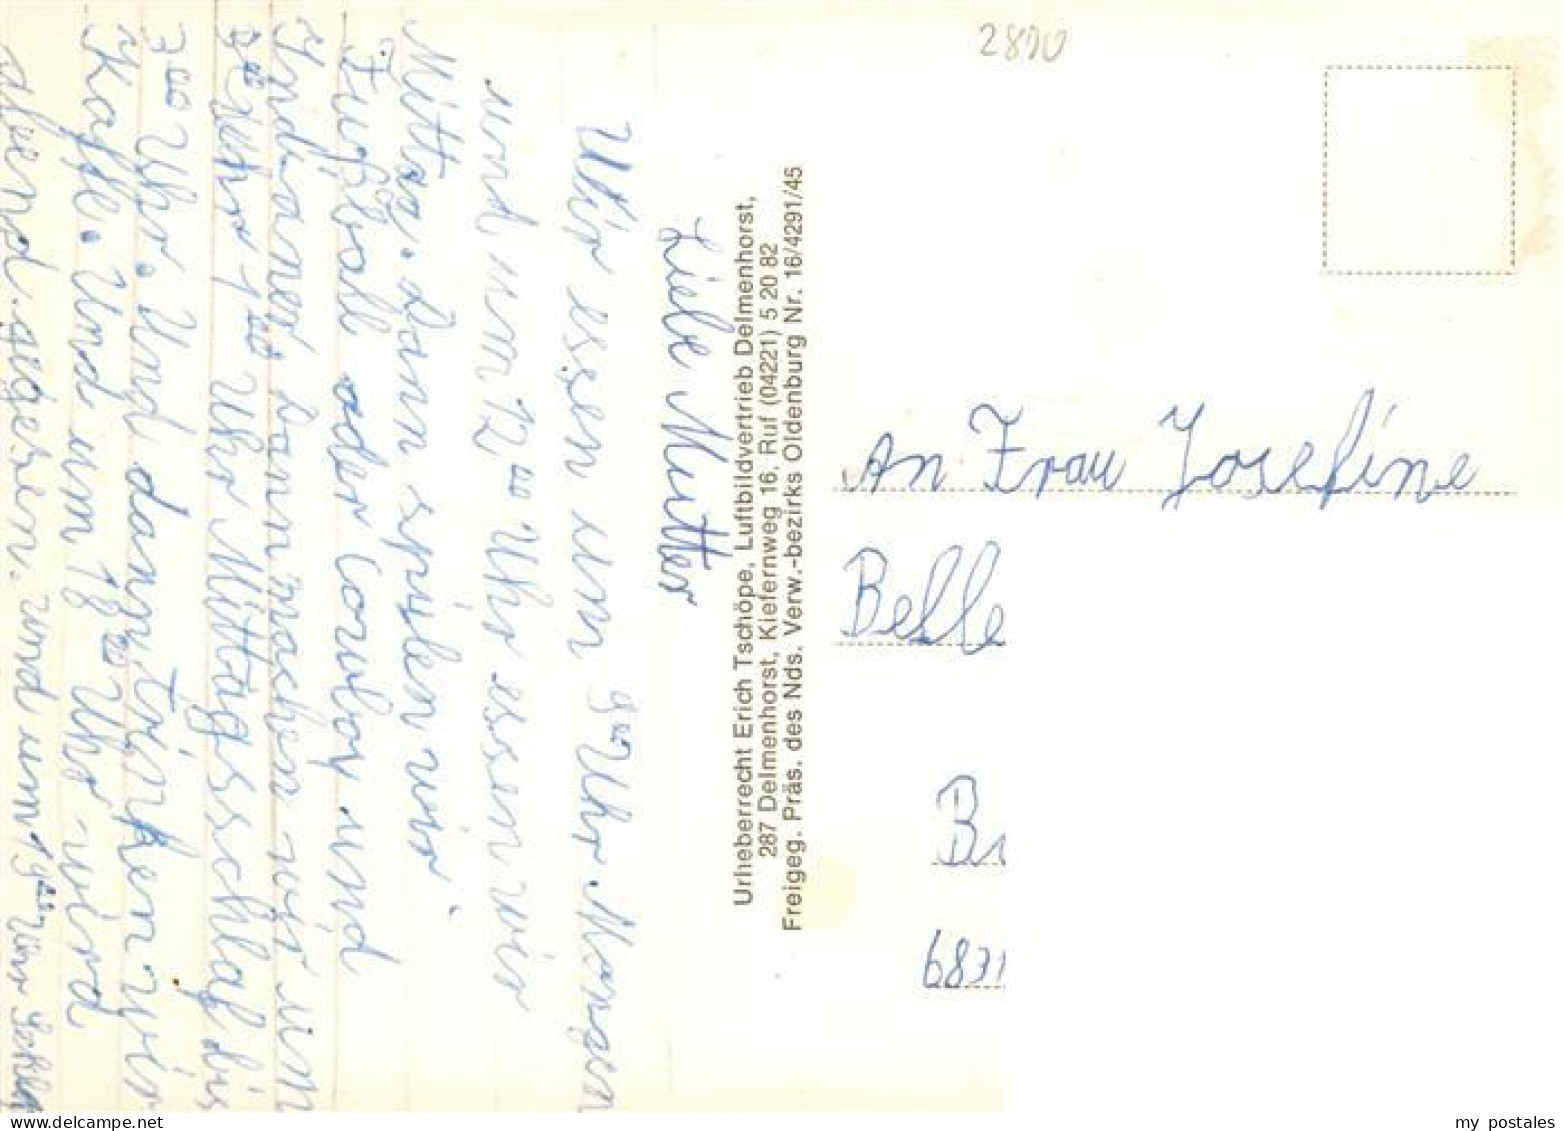 2870
Liebe Mutter
Wir essen um 9 00 Uhr Morgen
und um 12 00 Uhr essen wir
Mittag. Dann spielen wir
Fußball oder Cowboy und
Indianer. Dann machen wir um
1 00 Uhr Mittagsschlaf bis
3 00 Uhr. Und dann trinken wir
Kaffe. Und um 18 00 Uhr wird
abend gegesen. und um 19 00 Uhr
Urheberrecht Erich Tschöpe, Luftbildvertrieb Delmenhorst,
287 Delmenhorst, Kiefernweg 16, Ruf (04221) 5 20 82
Freigeg. Präs. des Nds. Verw.-bezirks Oldenburg Nr. 16/4291/45
An Frau Josefine
Belle
Br
6831
my postales
www.delcampe.net